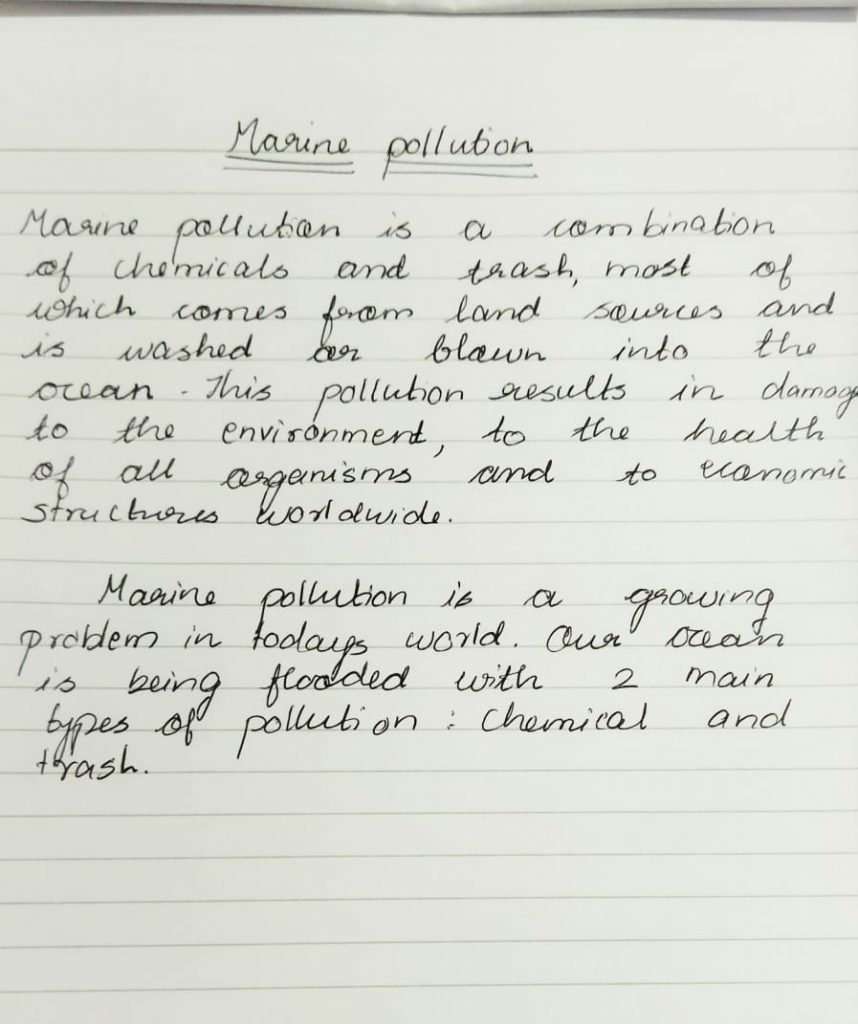 Marine pollution
Marine pollution is a combination
of chemicals and trash, most of
which comes from land sources and
is washed or blown into the
ocean. This pollution results in damage
to the environment, to the health
of all organisms and to economic
structures worldwide.
Marine pollution is a growing
problem in todays world. Our ocean
is being flooded with 2 main
types of pollution : Chemical and
trash.